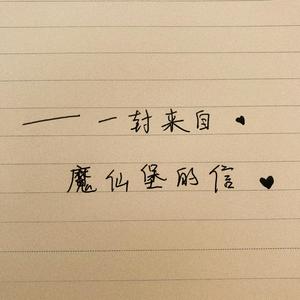 ——一封来自♥
魔仙堡的信♥